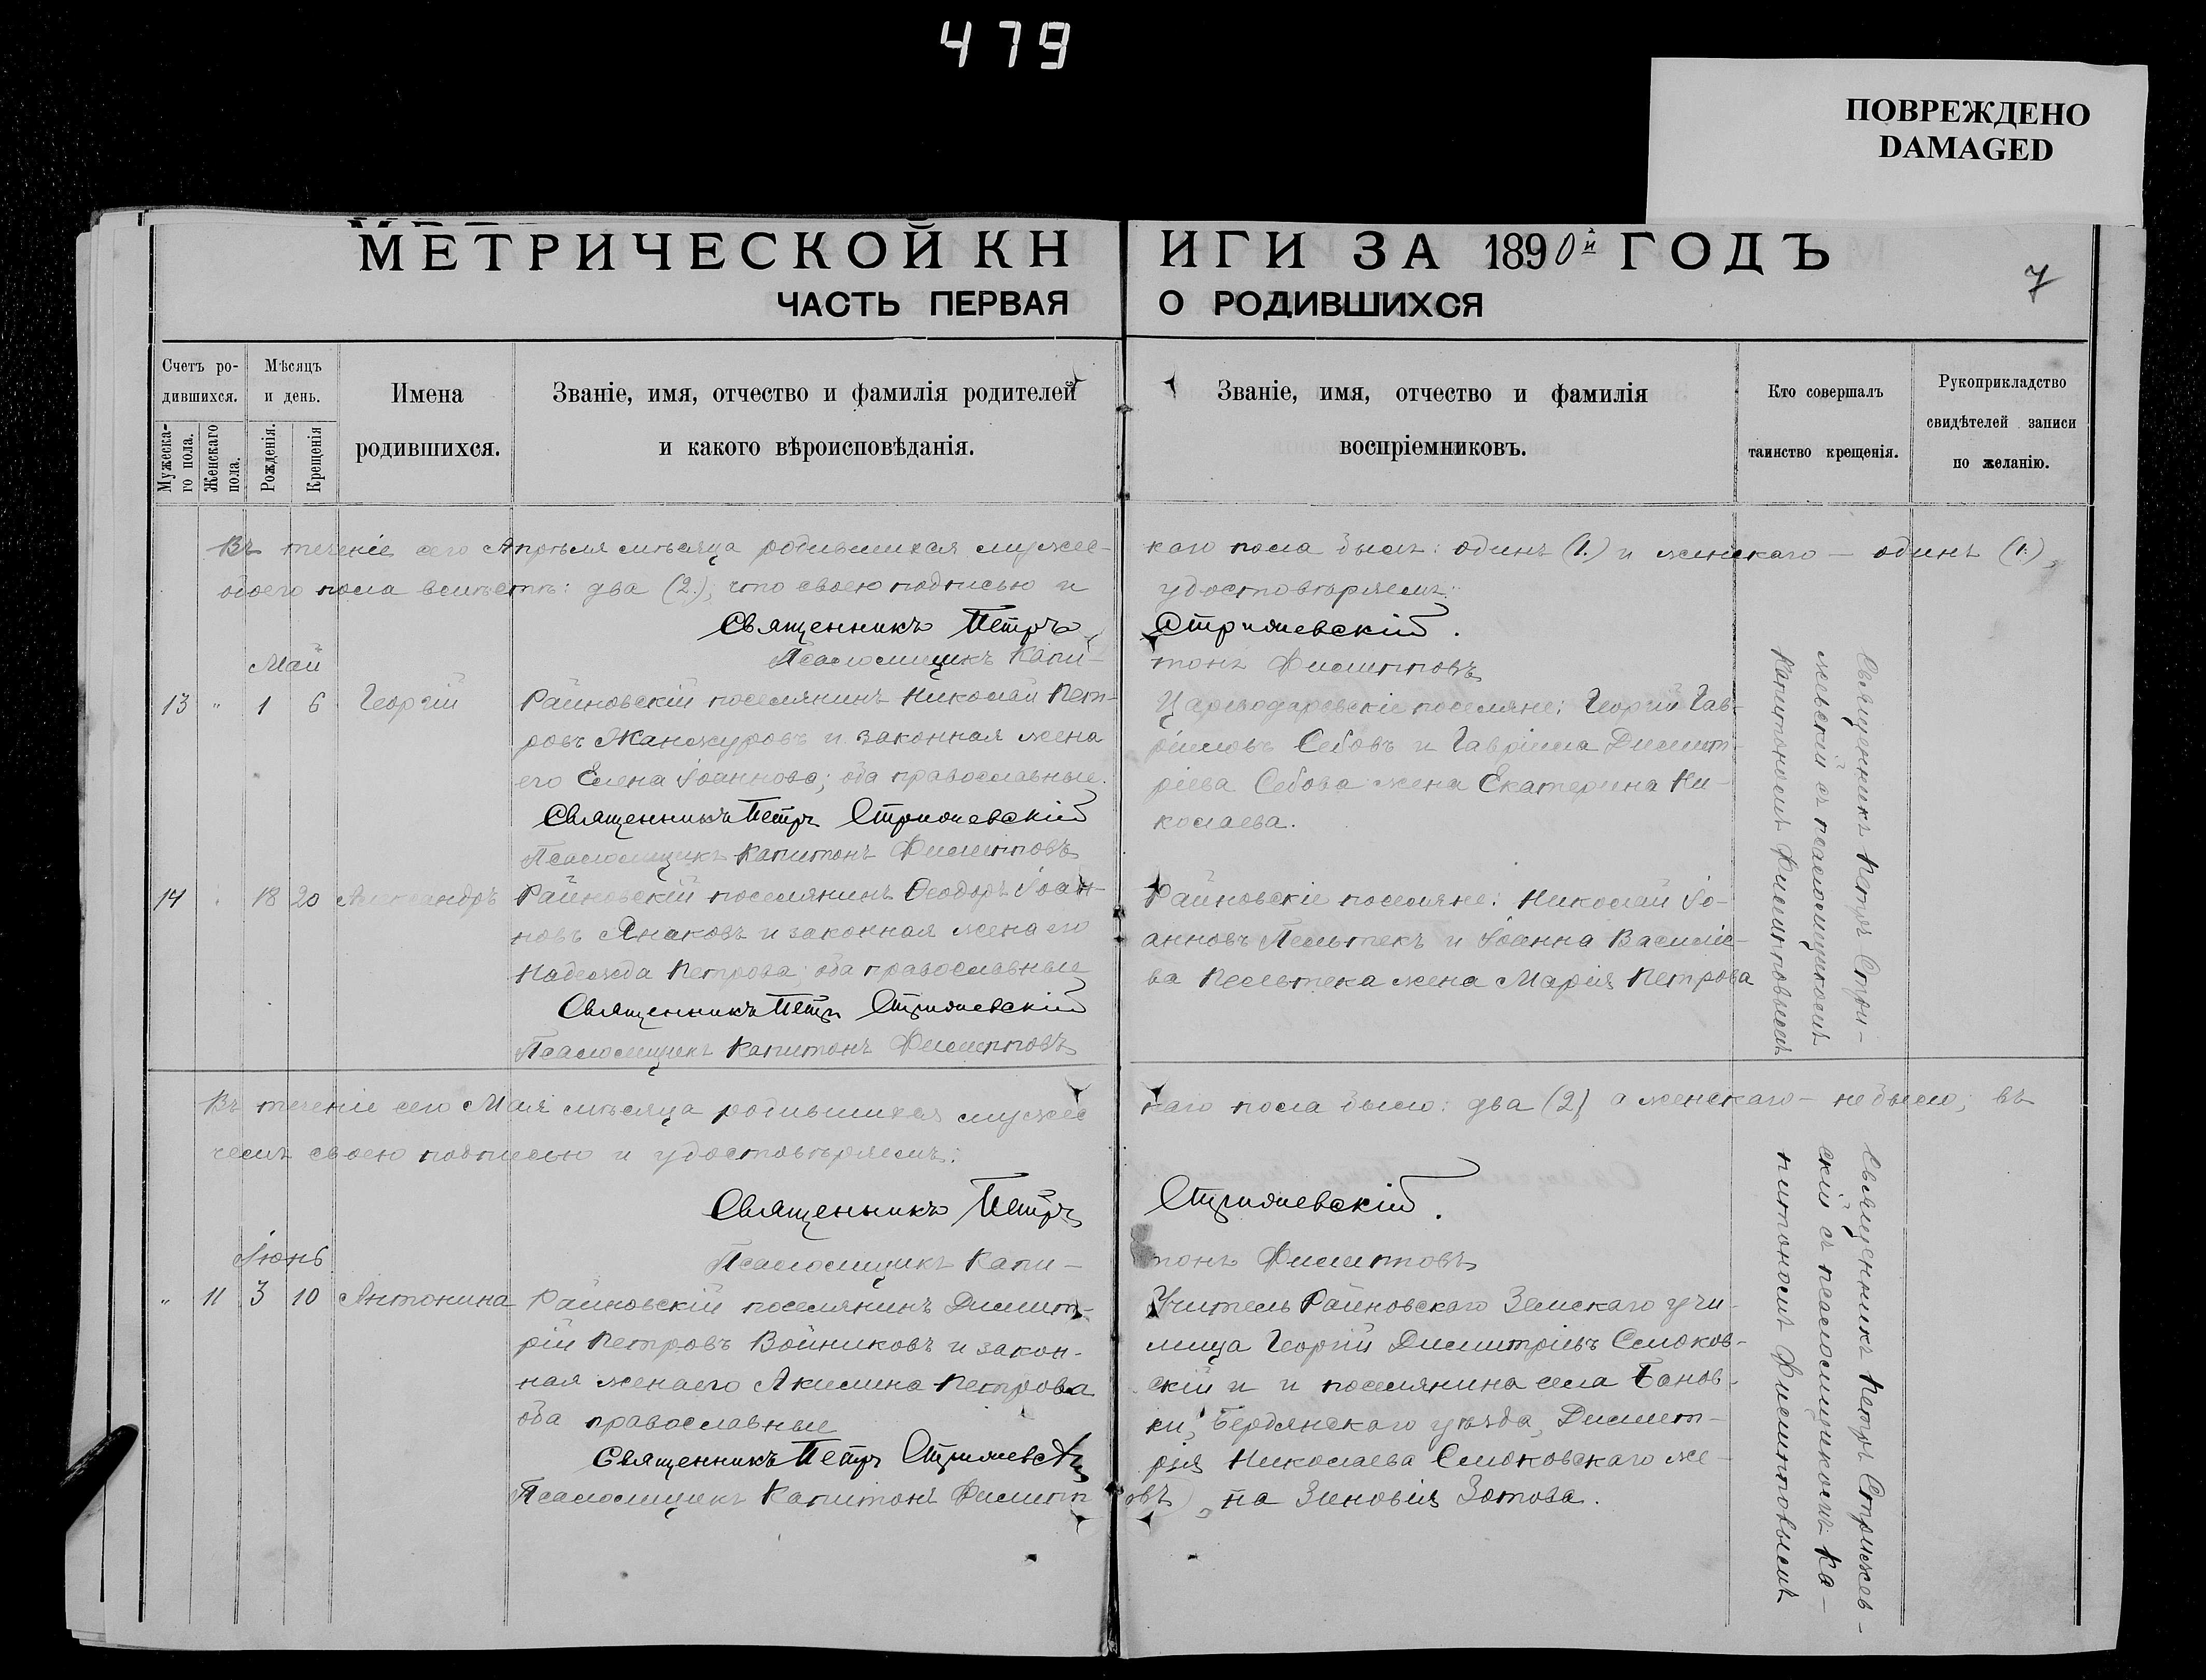 479
ПОВРЕЖДЕНО
DAMAGED
МЕТРИЧЕСКОЙ КНИГИ ЗА 1890й ГОДЪ
7
ЧАСТЬ ПЕРВАЯ О РОДИВШИХСЯ
Счетъ родившихся.
Мужескаго пола.
Женскаго пола.
Мѣсяцъ и день.
Рожденія.
Крещенія
Имена родившихся.
Званіе, имя, отчество и фамилія родителей
и какого вѣроисповѣданія.
Званіе, имя, отчество и фамилія
воспріемниковъ.
Кто совершалъ
таинство крещенія.
Рукоприкладство
свидѣтелей записи
по желанію.
Въ теченіе сего Апрѣля мѣсяца родившихся мужескаго пола былъ: одинъ (1.) и женскаго — одинъ (1.),
обоего пола вмѣстѣ: два (2.); что своею подписью и удостовѣряемъ:
Священникъ Петръ Стрижевскій.
Псаломщикъ Капитонъ Филипповъ
Май
13 " 1 6 Георгій
Райновскій поселянинъ Николай Пет-
ровъ Жанжуровъ и законная жена
его Елена Іоаннова; оба православные.
Священникъ Петръ Стрижевскій
Псаломщикъ Капитонъ Филипповъ
Цареводаровскіе поселяне: Георгій Гав-
ріиловъ Себовъ и Гавріила Димит-
ріева Себова жена Екатерина Ни-
колаева.
Священникъ Петръ Стри-
жевскій съ псаломщикомъ
Капитономъ Филипповымъ
14 18 20 Александръ
Райновскій поселянинъ Ѳеодоръ Іоан-
новъ Янаковъ и законная жена его
Надежда Петрова оба православные
Священникъ Петръ Стрижевскій
Псаломщикъ Капитонъ Филипповъ
Райновскіе поселяне: Николай Іо-
анновъ Пельтекъ и Іоанна Василіе-
ва Пельтека жена Марія Петрова
Въ теченіе сего Мая мѣсяца родившихся мужескаго пола было: два (2) а женскаго — не было; въ
чемъ своею подписью и удостовѣряемъ:
Священникъ Петръ Стрижевскій.
Псаломщикъ Капитонъ Филипповъ
Іюнь
" 11 3 10 Антонина
Райновскій поселянинъ Димит-
рій Петровъ Войниковъ и закон-
ная жена его Акилина Петрова
оба православные
Священникъ Петръ Стрижевскій
Псаломщикъ Капитонъ Филипповъ
Учитель Райновскаго Земскаго учи-
лища Георгій Димитріевъ Смоков-
скій и и поселянина села Банов-
ки, Бердянскаго уѣзда, Димит-
рія Николаева Смоковскаго же-
на Зиновія Зотова.
Священникъ Петръ Стрижев-
скій съ псаломщикомъ Ка-
питономъ Филипповымъ